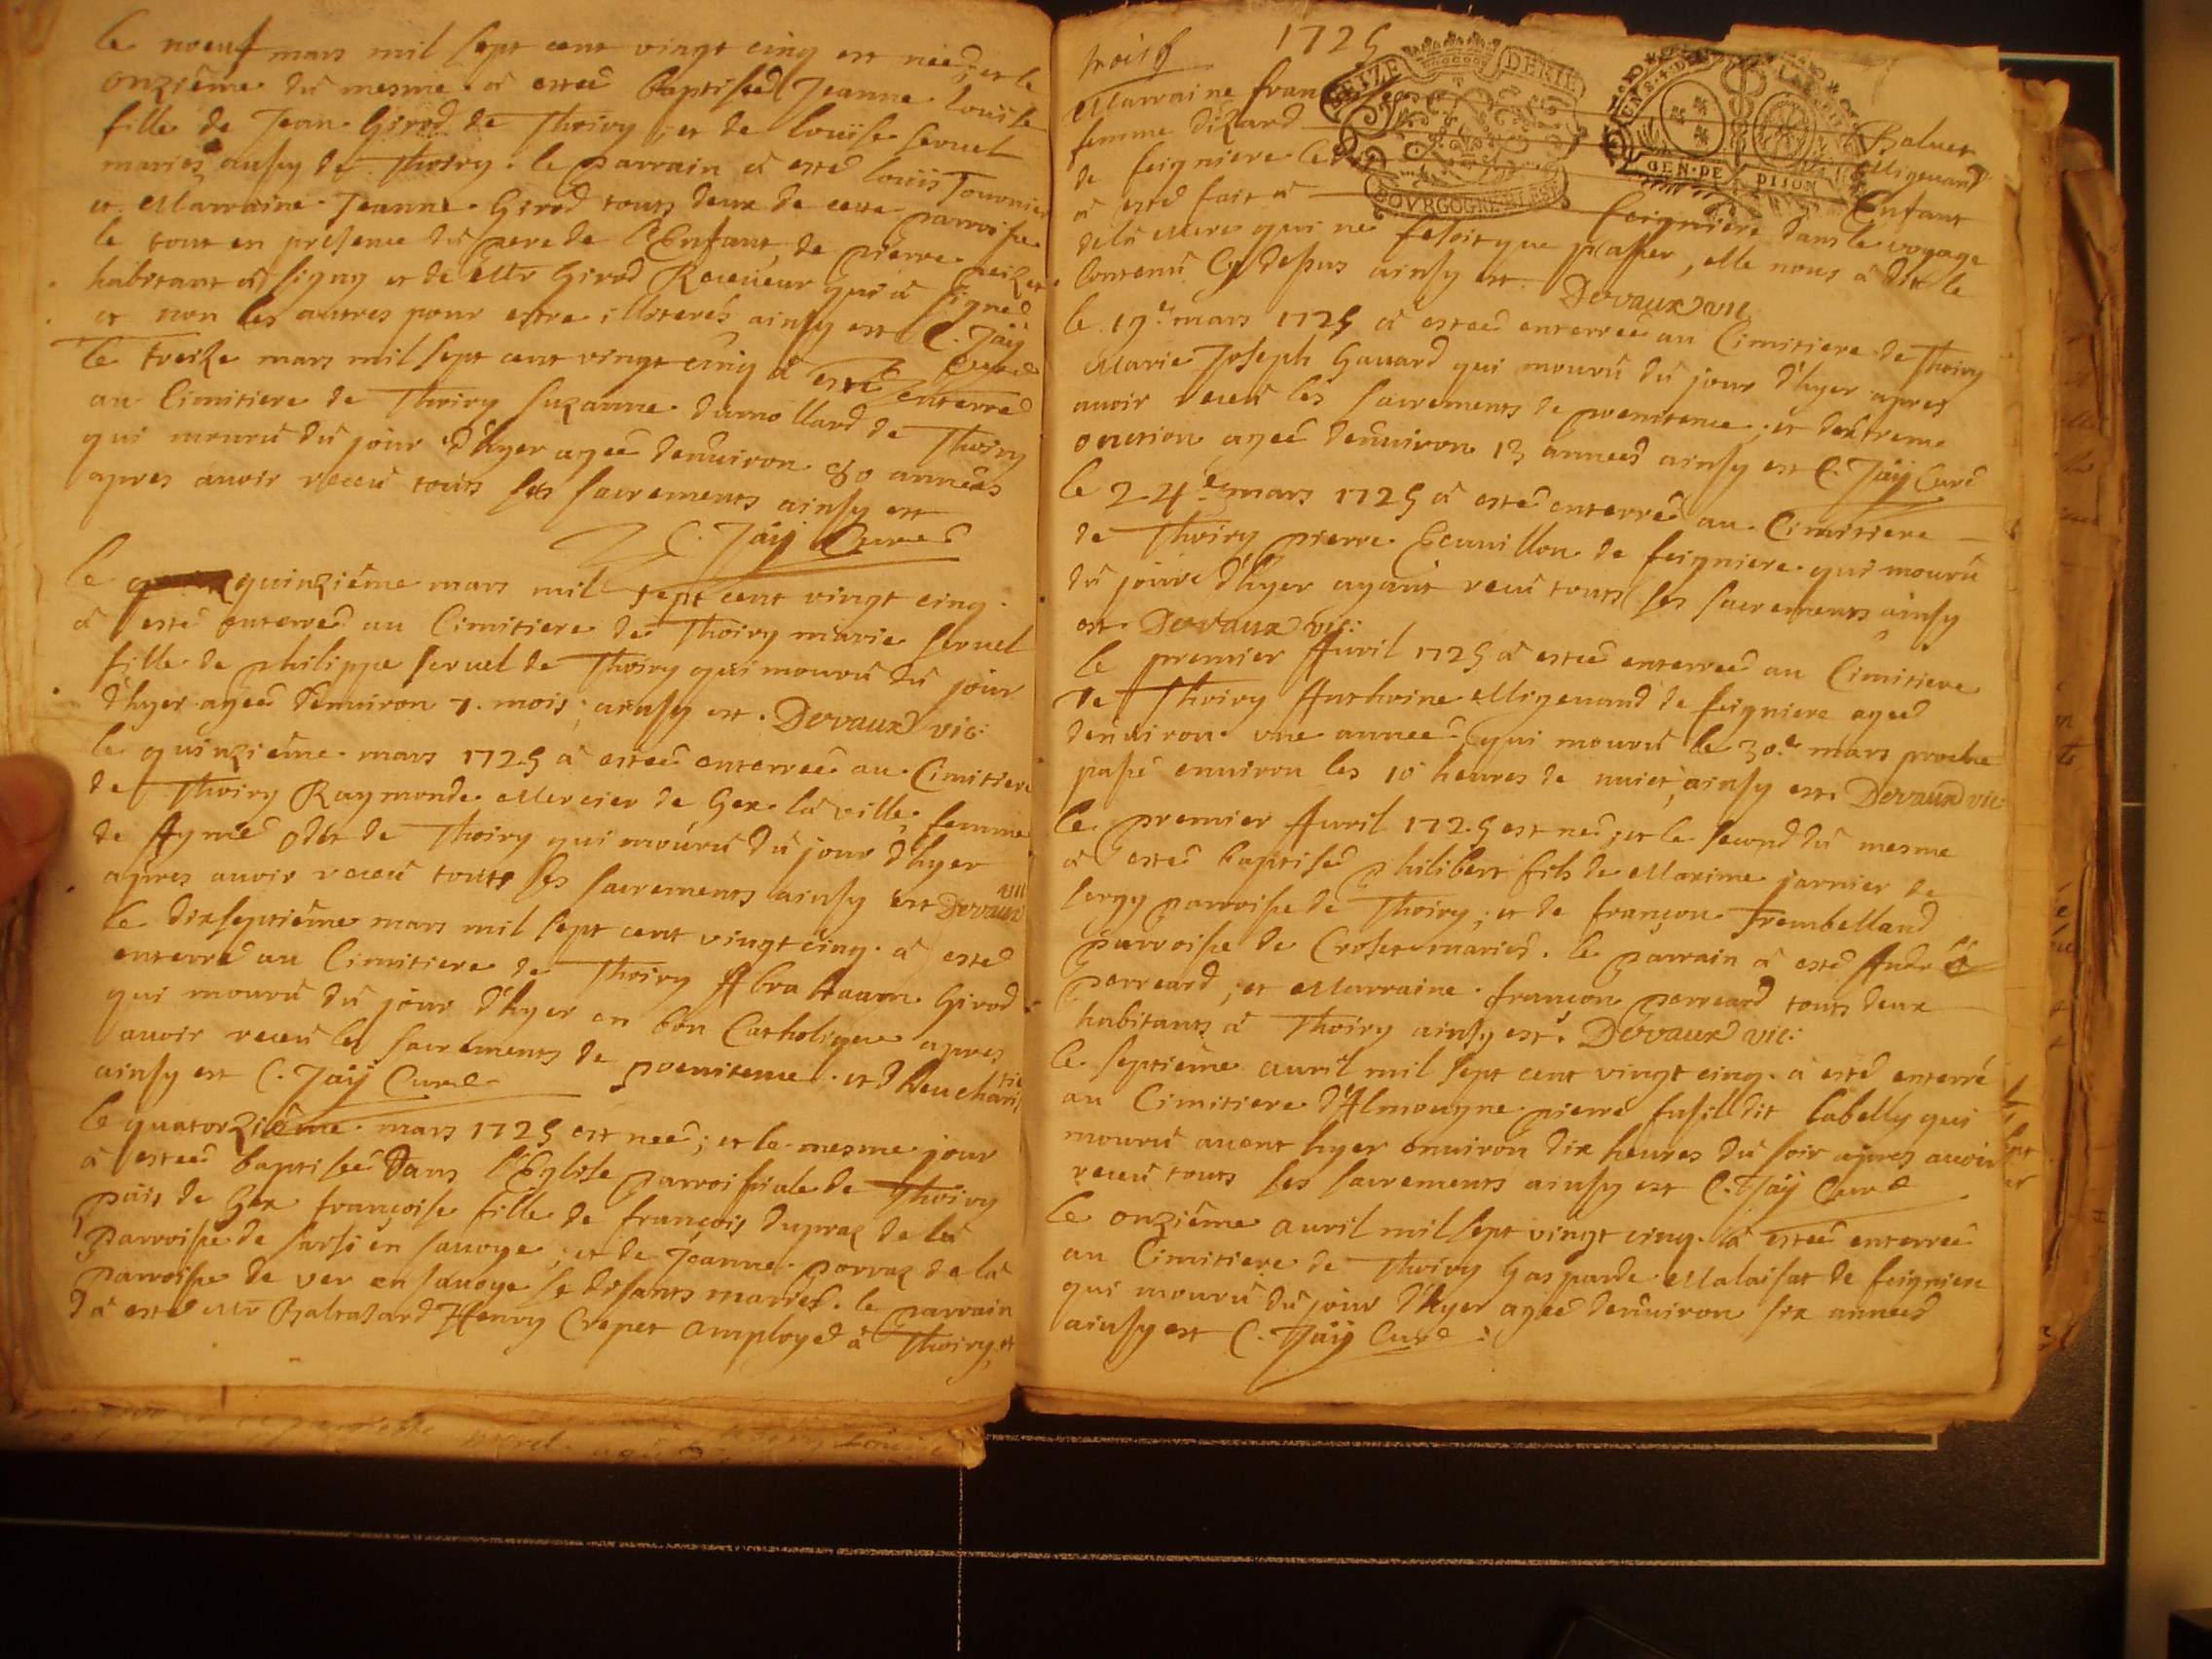 le neuf mars mil sept cent vingt cinq est neé, et le
onziême du mesme à esteé baptiseé Jeanne Louïse
fille de Jean Girod de Thoiry, et de Louïse Seruet
mariés ausy de Thoiry. le parrain à esté Louïs Tournier
et Marraine Jeanne Girod touts deux de cette parroisse
le tout en presence du pere de l'Enfant, de pierre
habitant à signy et de Mr Girod Receueur qui à signé
et non les autres pour estre illiterés ainsy est C. Jaÿ
Curé
le treize mars mil sept cent vingt cinq à esté enterré
au Cimitiere de Thoiry Suzanne dumollard de Thoiry
qui mourû du jour d'hyer ageé d'enuiron 80 annés
apres auoir receu touts ses sacrements ainsy est
C. Jaÿ Curé
le quinziême mars mil sept cent vingt cinq
à esté enterré au Cimitiere de Thoiry marie Seruet
fille de philippe Seruet de Thoiry qui mourû du jour
d'hyer ageé d'enuiron 7. mois, ainsy est. Devaux vic:
le quinziême mars 1725 à esteé enterreé au Cimitiere
de Thoiry Raymonde Mercier de Gex la ville, femme
de Aymé Odet de Thoiry qui mourû du jour d'hyer
apres auoir receu touts ses sacrements ainsy est Devaux vic
le dixseptiême mars mil sept cent vingt cinq à esté
enterré au Cimitiere de Thoiry Abrahaam Girod
qui mourû du jour d'hyer en bon Catholique apres
auoir receu les sacrements de poenitence et d'heucharistie
ainsy est C. Jaÿ Curé
le quatorziême mars 1725 est neé; et le mesme jour
à esteé baptiseé dans l'Eglise parroissiale de Thoiry
païs de Gex françoise fille de françois dupraz de la
parroisse de en sauoye, et de Jeanne porraz de la
parroisse de ver en sauoye se disants mariés. le parrain
à esté Mr Baltasard Henry Crepet employé à Thoiry, et
trois 1725
SEIZE DENIE
BOVRGOGNE BRESSE
GEN. DE DIJON
Marraine fran Baluet
femme d'Izard Migeuand
de feigniere le Enfant
à esté fait à feigniere dans le voyage
de la Mere qui ne fesoit que passer, elle nous à dit le
contenû Cy dessus ainsy est. Devaux vic
le 19.e mars 1725 à esteé enterreé au Cimitiere de Thoiry
Marie Joseph Gauard qui mourû du jour d'hyer apres
auoir receu les sacrements de poenitence, et d'extreme
onction ageé d'enuiron 13 anneés ainsy est C. Jaÿ Curé
le 24.e mars 1725 à esté enterré au Cimitiere
de Thoiry pierre Ecuuillon de feigniere qui mourû
du jour d'hyer ayant receu touts ses sacrements ainsy
est. Devaux vic:
le premier Auril 1725 à esteé enterreé au Cimitiere
de Thoiry Anthoine Migeuand de feigniere ageé
d'enuiron vne anneé, qui mourû le 30.e mars proche
passé enuiron les 10 heures de nuict, ainsy est. Devaux vic:
le premier Auril 1725 est né, et le second du mesme
à esté baptisé philibert fils de Maxime jarnier de
sergy parroisse de Thoiry, et de françon Trembelland
parroisse de Croset mariés. le parrain à esté André
perreard, et Marraine françon perreard touts deux
habitants à Thoiry ainsy est. Devaux vic:
le septiême auril mil sept cent vingt cinq à esté enterré
au Cimitiere d'Almougne pierre fusill dit labelly qui
mourû auant hyer enuiron dix heures du soir apres auoir
receu touts ses sacrements ainsy est C. Jaÿ Curé
le onziême auril mil sept vingt cinq à esteé enterreé
au Cimitiere de Thoiry Gasparde Malaisat de feigniere
qui mourû du jour d'hyer ageé d'enuiron six anneés
ainsy est C. Jaÿ Curé